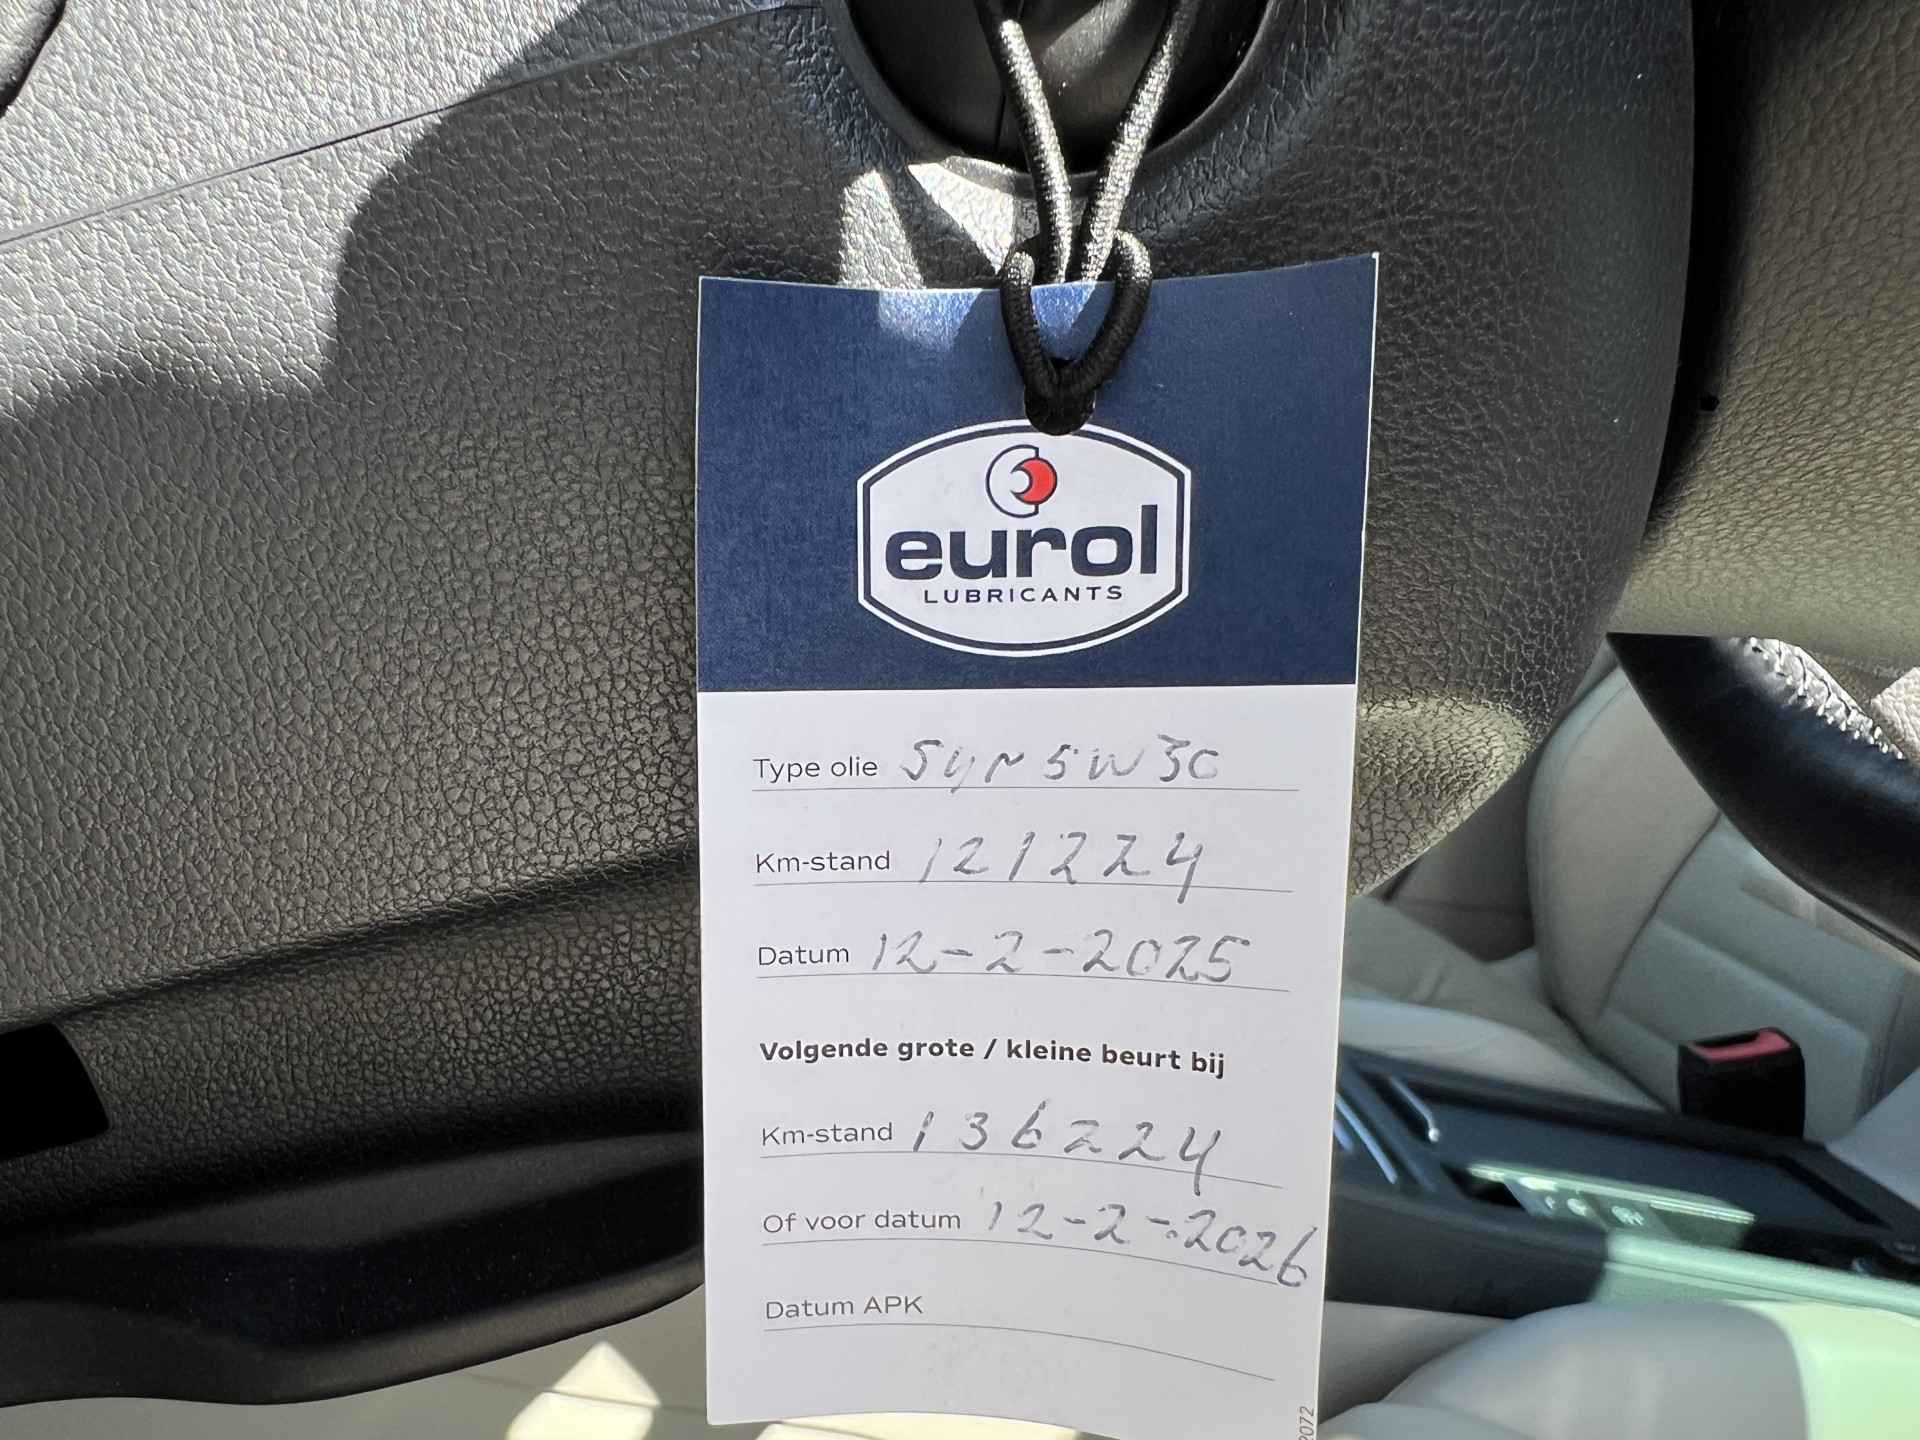 eurol
LUBRICANTS
Type olie Syn 5W30
Km-stand 121224
Datum 12-2-2025
Volgende grote / kleine beurt bij
Km-stand 136224
Of voor datum 12-2-2026
Datum APK